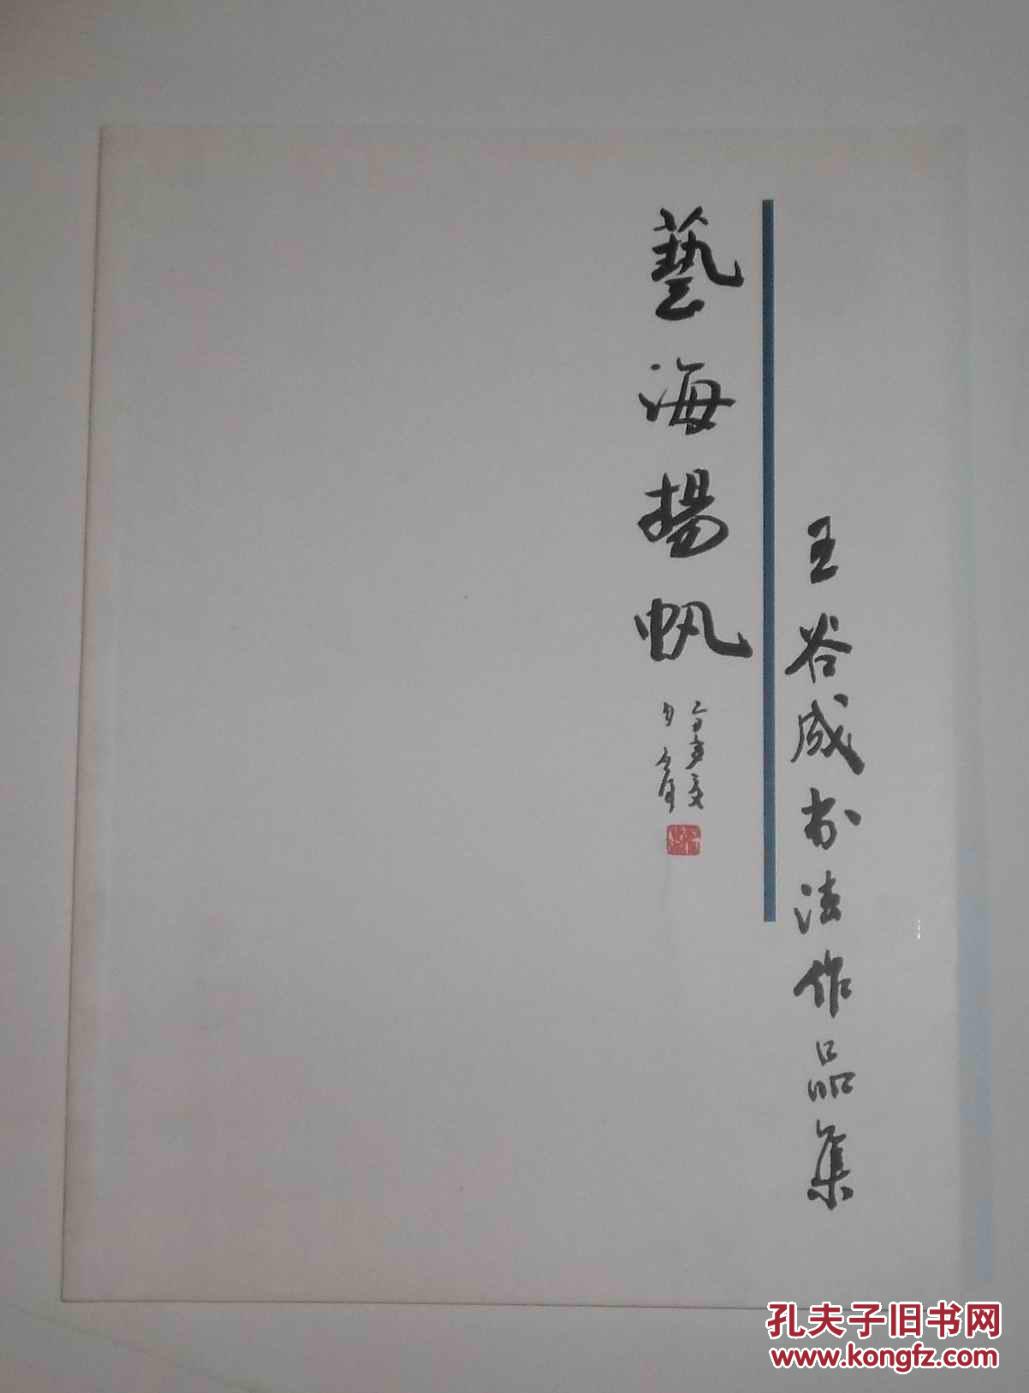 王谷成书法作品集
藝海揚帆
孔夫子旧书网
www.kongfz.com